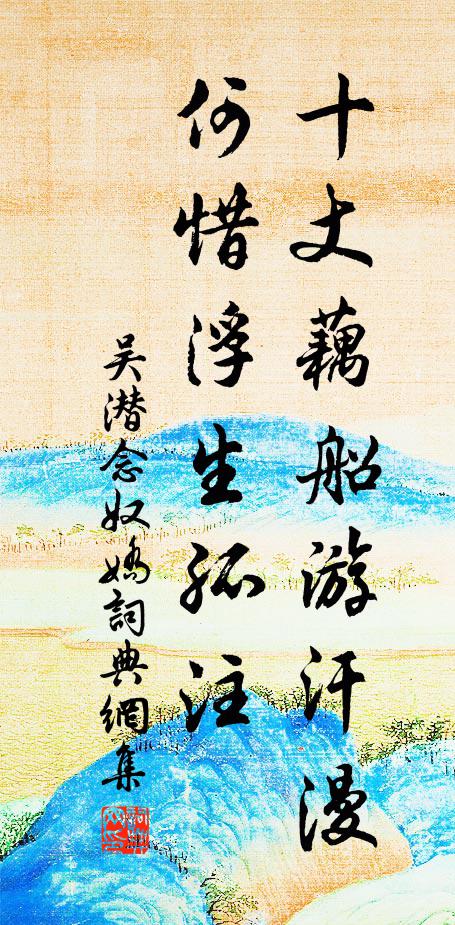 十丈藕船游汗漫
何惜浮生孤注
吴潜念奴娇詞典網集